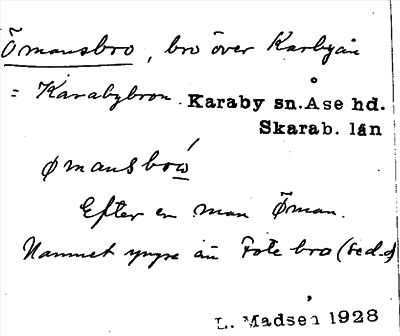 Ömansbro, bro över Karbyån
= Karabybron. Karaby sn. Åse hd.
Skarab. län
ømansbów
Efter en man Öman.
Namnet yngre än Fote bro (se d.o)
L. Madsen 1928